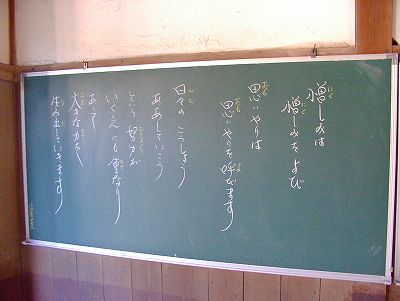 憎しみは
憎しみをよび
思いやりは
思いやりを呼びます
日々の こうしよう
ああしていこう
という 努力が
いくえにも 重なり
あって
大きな力を
生み出していきます